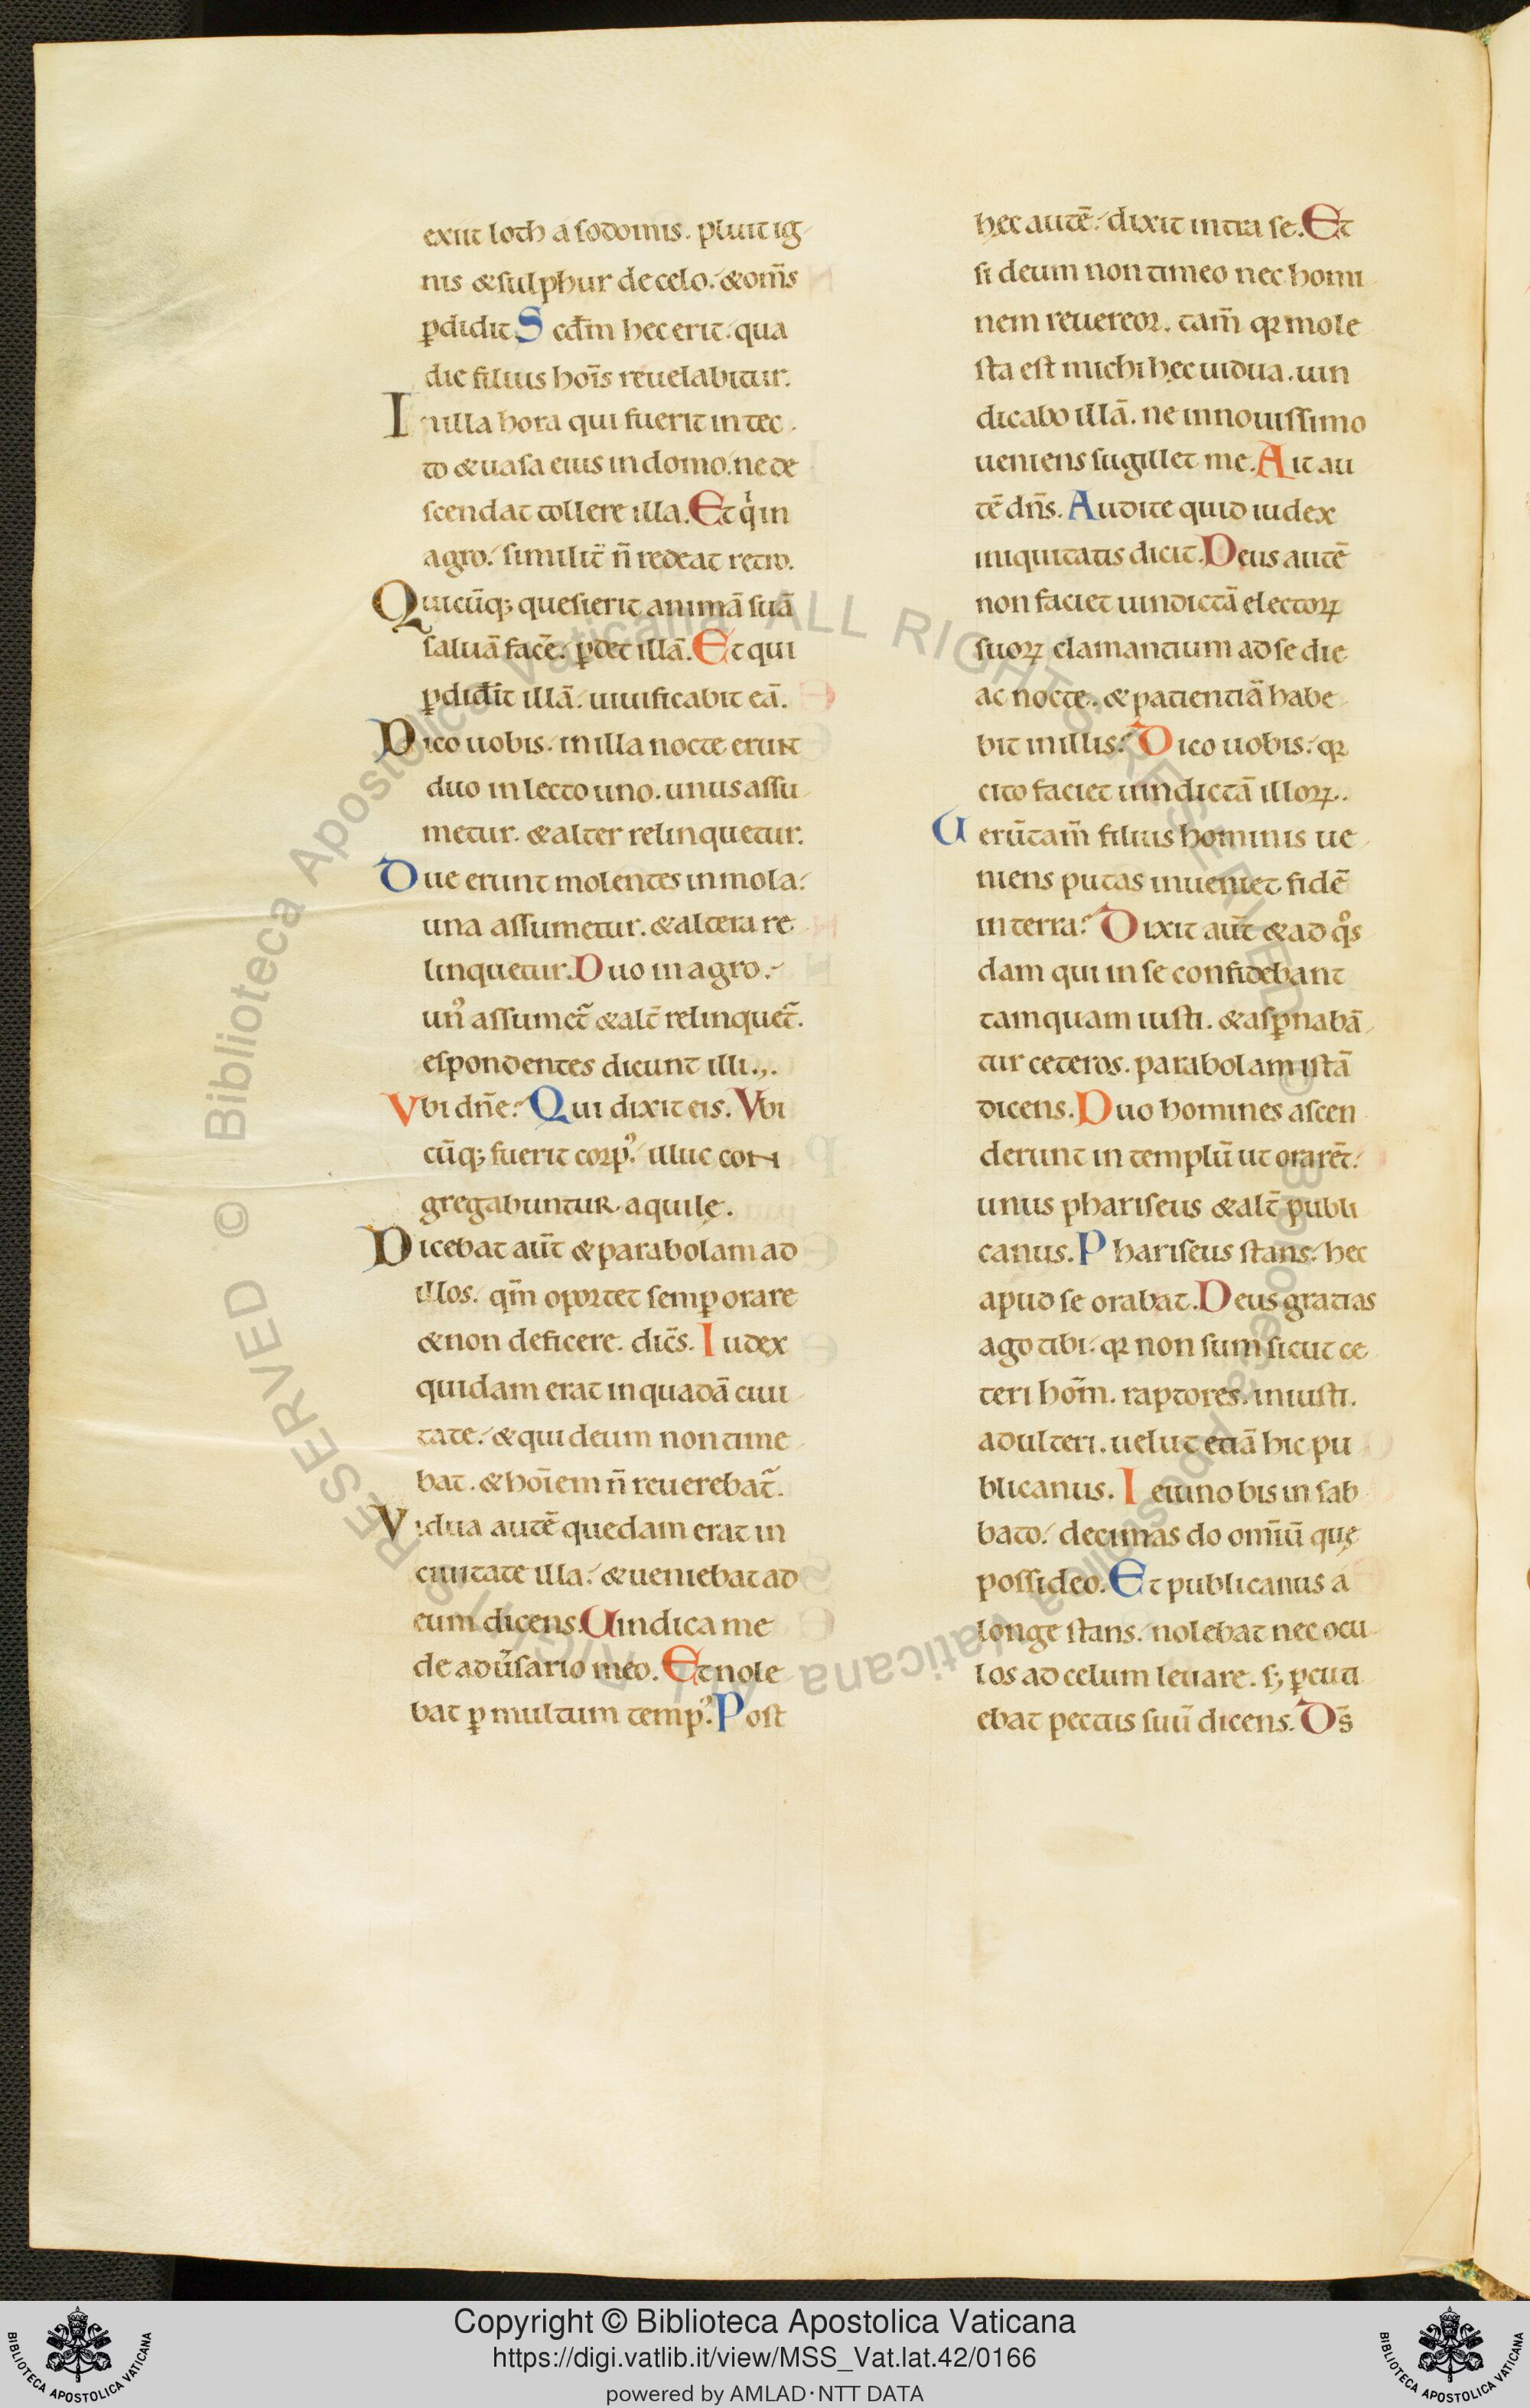 exiit loth a sodomis. pluit ig
nis & sulphur de celo. & om̅s
p̱didit Scd̅m hec erit. qua
die filius ho̅is reuelabitur.
In illa hora qui fuerit in tec
to & uasa eius in domo. ne de
scendat tollere illa. Et qͥ in
agro. similit̅ n̅ redeat retro.
Quicu̅q; quesierit anima̅ sua̅
salua̅ face̅. p̱det illa̅. Et qui
p̱did̅it illa̅. uiuificabit ea̅.
Dico uobis. in illa nocte erunt
duo in lecto uno. unus assu
metur. & alter relinquetur.
Due erunt molentes in mola.
una assumetur. & altera re
linquetur. Duo in agro.
unꝰ assumet᷑ & alt̅ relinquet᷑.
espondentes dicunt illi.,.
Vbi dn̅e? Qui dixit eis. Vbi
cu̅q; fuerit corpꝰ. illuc con
gregabuntur aquilę.
Dicebat au̅t & parabolam ad
illos. qm̅ oportet semp̱ orare
& non deficere. dic̅s. Iudex
quidam erat in quada̅ ciui
tate. & qui deum non time
bat. & ho̅iem n̅ reuerebat᷑.
Vidua aute̅ quedam erat in
ciuitate illa. & ueniebat ad
eum dicens. Uindica me
de adu̅sario meo. Et nole
bat p̱ multum tempꝰ. Post
hec aute̅. dixit intra se. Et
si deum non timeo nec homi
nem reuereor. tam̅ qꝛ mole
sta est michi hęc uidua. uin
dicabo illa̅. ne in nouissimo
ueniens sugillet me. Ait au
te̅ dn̅s. Audite quid iudex
iniquitatis dicit. Deus aute̅
non faciet uindicta̅ electoꝝ
suoꝝ clamantium ad se die
ac nocte. & patientia̅ habe
bit in illis? Dico uobis. qꝛ
cito faciet uindicta̅ illoꝝ.
Ueru̅tam̅ filius hominis ue
niens putas inueniet fide̅
in terra? Dixit au̅t & ad qͦs
dam qui in se confidebant
tamquam iusti. & asp̱naba̅
tur ceteros. parabolam ista̅
dicens. Duo homines ascen
derunt in templu̅ ut orare̅t.
unus phariseus & alt̅ publi
canus. Phariseus stans. hec
apud se orabat. Deus gratias
ago tibi. qꝛ non sum sicut ce
teri hom̅. raptores. iniusti.
adulteri. uelut etia̅ hic pu
blicanus. Ieiuno bis in sab
bato. decimas do omi̅u̅ quę
possideo. Et publicanus a
longe stans. nolebat nec ocu
los ad celum leuare. s; p̱cuti
ebat pectus suu̅ dicens. Ds̅
© Biblioteca Apostolica Vaticana ALL RIGHTS RESERVED © Biblioteca Apostolica Vaticana ALL RIGHTS RESERVED
Copyright © Biblioteca Apostolica Vaticana
https://digi.vatlib.it/view/MSS_Vat.lat.42/0166
powered by AMLAD·NTT DATA
BIBLIOTECA APOSTOLICA VATICANA
BIBLIOTECA APOSTOLICA VATICANA